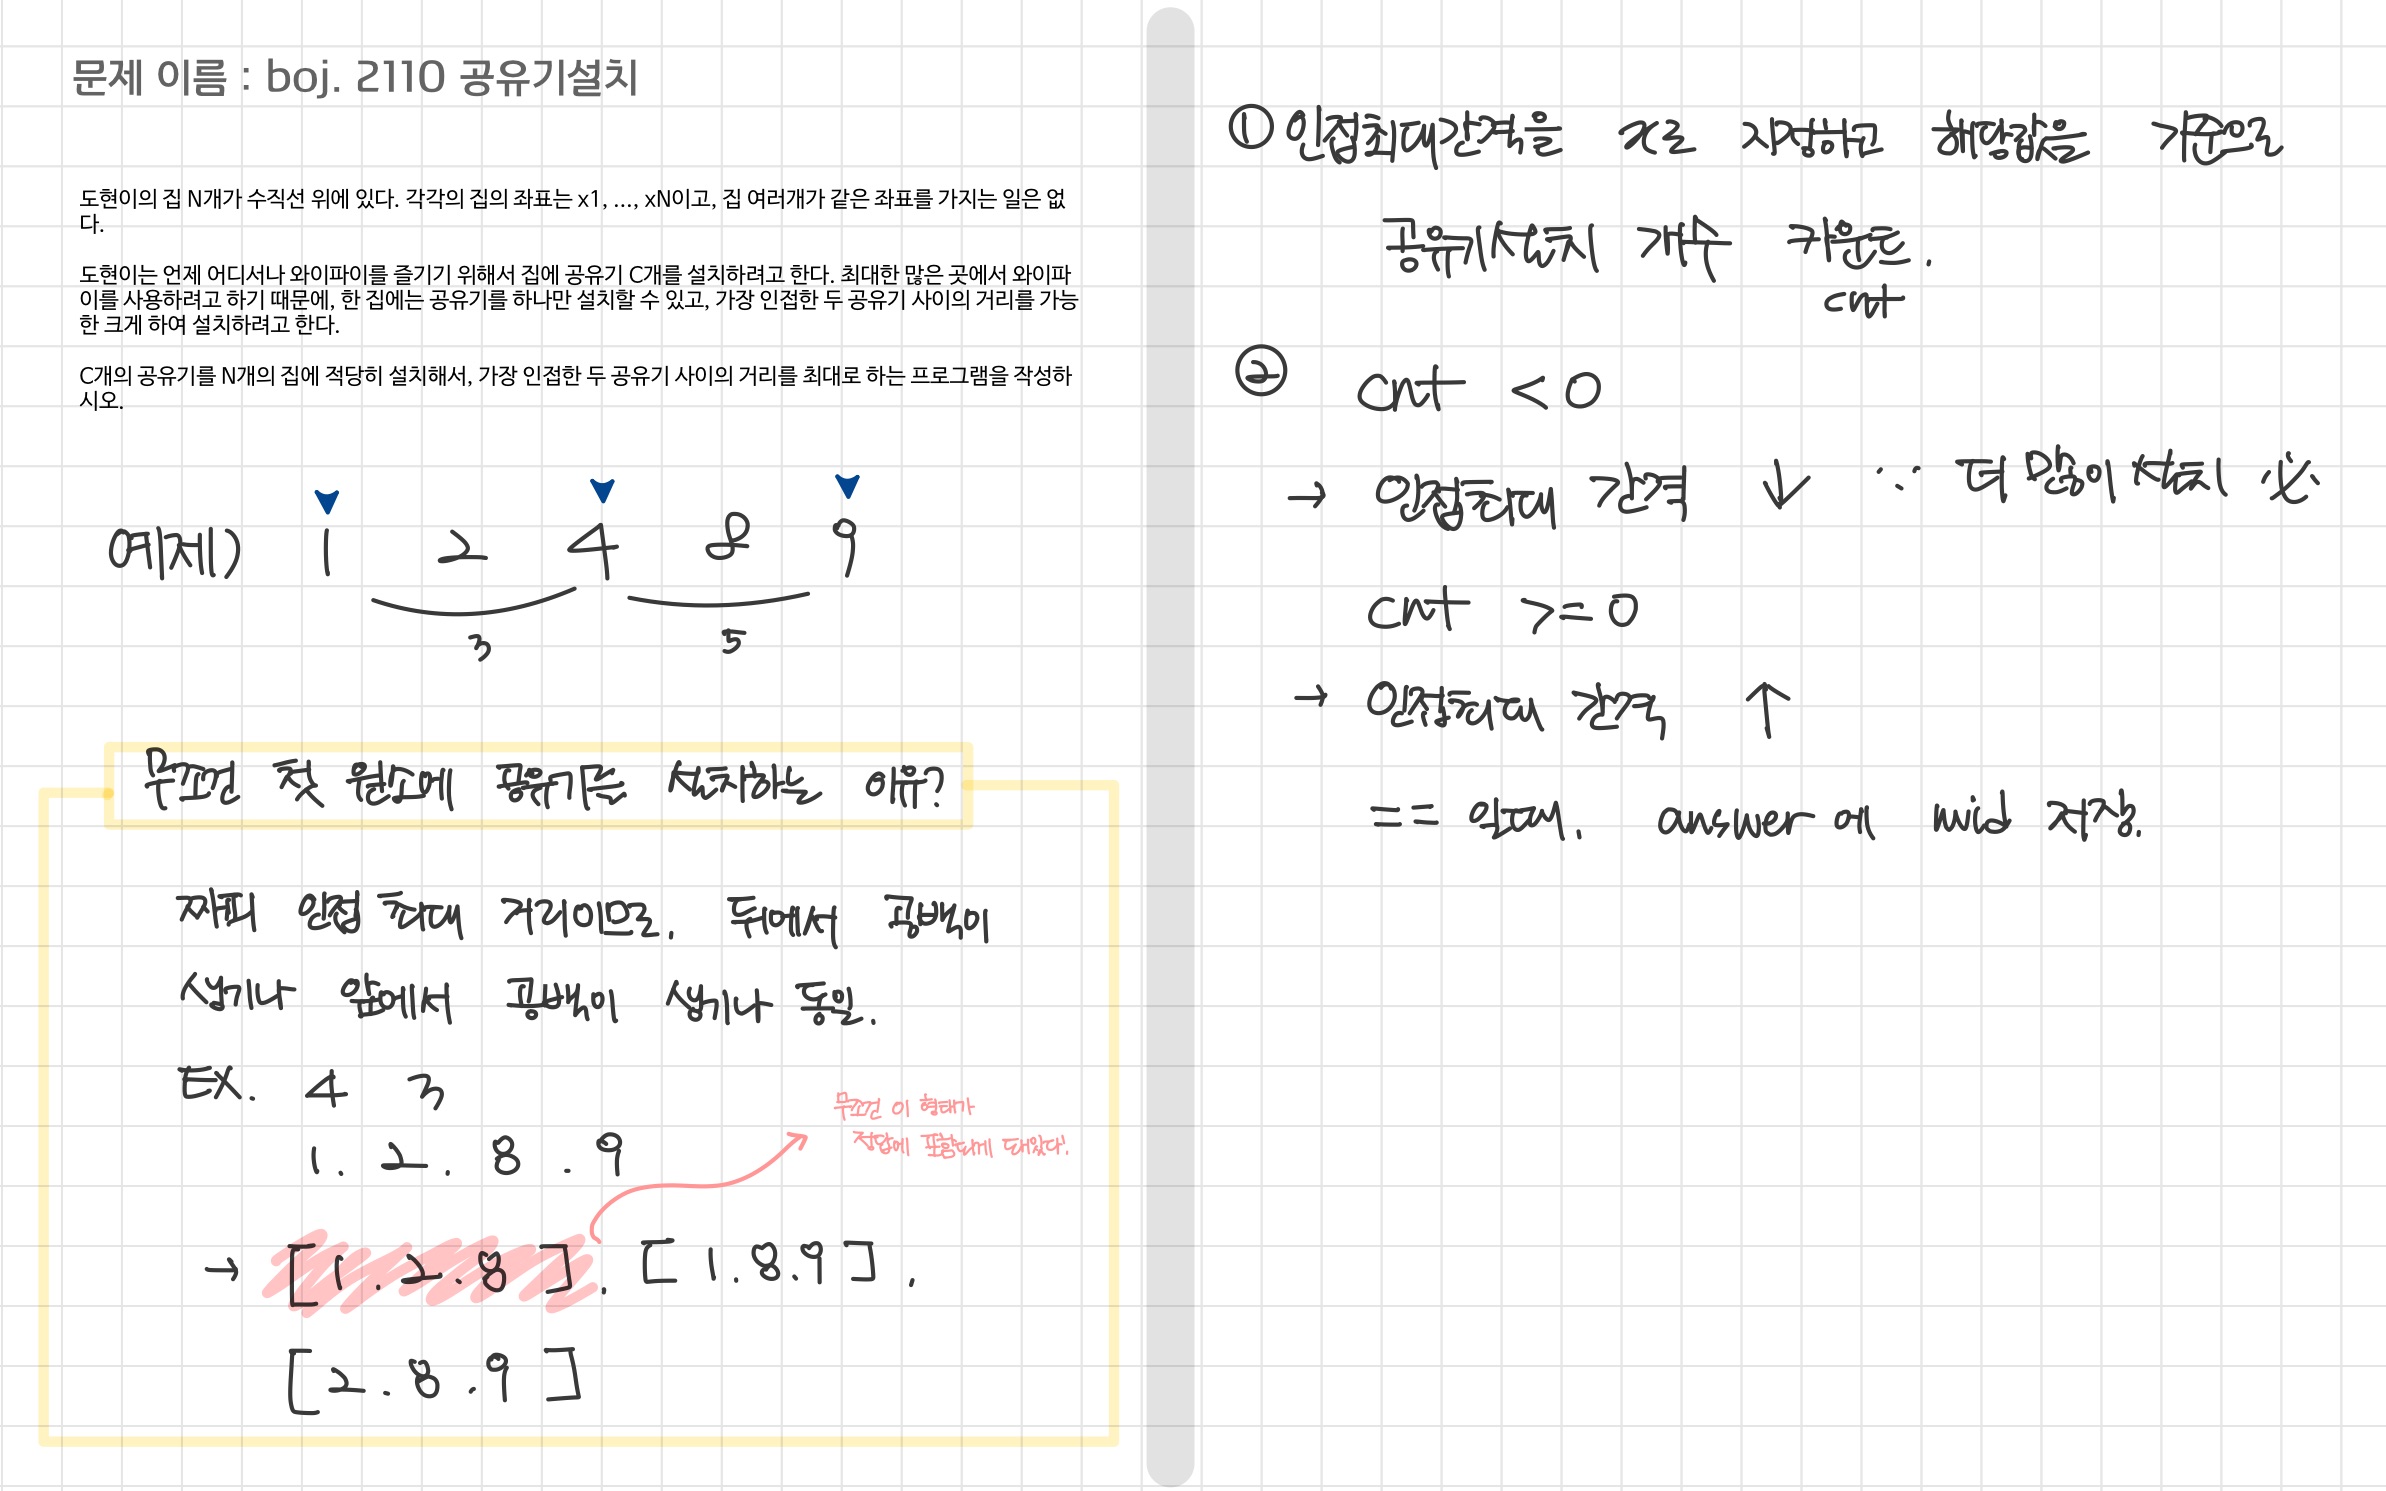 문제 이름 : boj. 2110 공유기설치
도현이의 집 N개가 수직선 위에 있다. 각각의 집의 좌표는 x1, ..., xN이고, 집 여러개가 같은 좌표를 가지는 일은 없
다.
도현이는 언제 어디서나 와이파이를 즐기기 위해서 집에 공유기 C개를 설치하려고 한다. 최대한 많은 곳에서 와이파
이를 사용하려고 하기 때문에, 한 집에는 공유기를 하나만 설치할 수 있고, 가장 인접한 두 공유기 사이의 거리를 가능
한 크게 하여 설치하려고 한다.
C개의 공유기를 N개의 집에 적당히 설치해서, 가장 인접한 두 공유기 사이의 거리를 최대로 하는 프로그램을 작성하
시오.
예제) 1 2 4 8 9
3 5
무조건 첫 원소에 공유기를 설치하는 이유?
짜피 인접 최대 거리이므로. 뒤에서 공백이
생기나 앞에서 공백이 생기나 동일.
EX. 4 3
1. 2. 8. 9
무조건 이 형태가
정답에 포함되게 돼있다!
→ [1. 2. 8]. [1. 8. 9].
[2. 8. 9]
① 인접최대간격을 x로 지정하고 해당값을 기준으로
공유기설치 개수 카운트.
cnt
② cnt < 0
→ 인접최대 간격 ↓ ∵ 더 많이 설치 必
cnt >= 0
→ 인접최대 간격 ↑
== 일때. answer에 mid 저장.